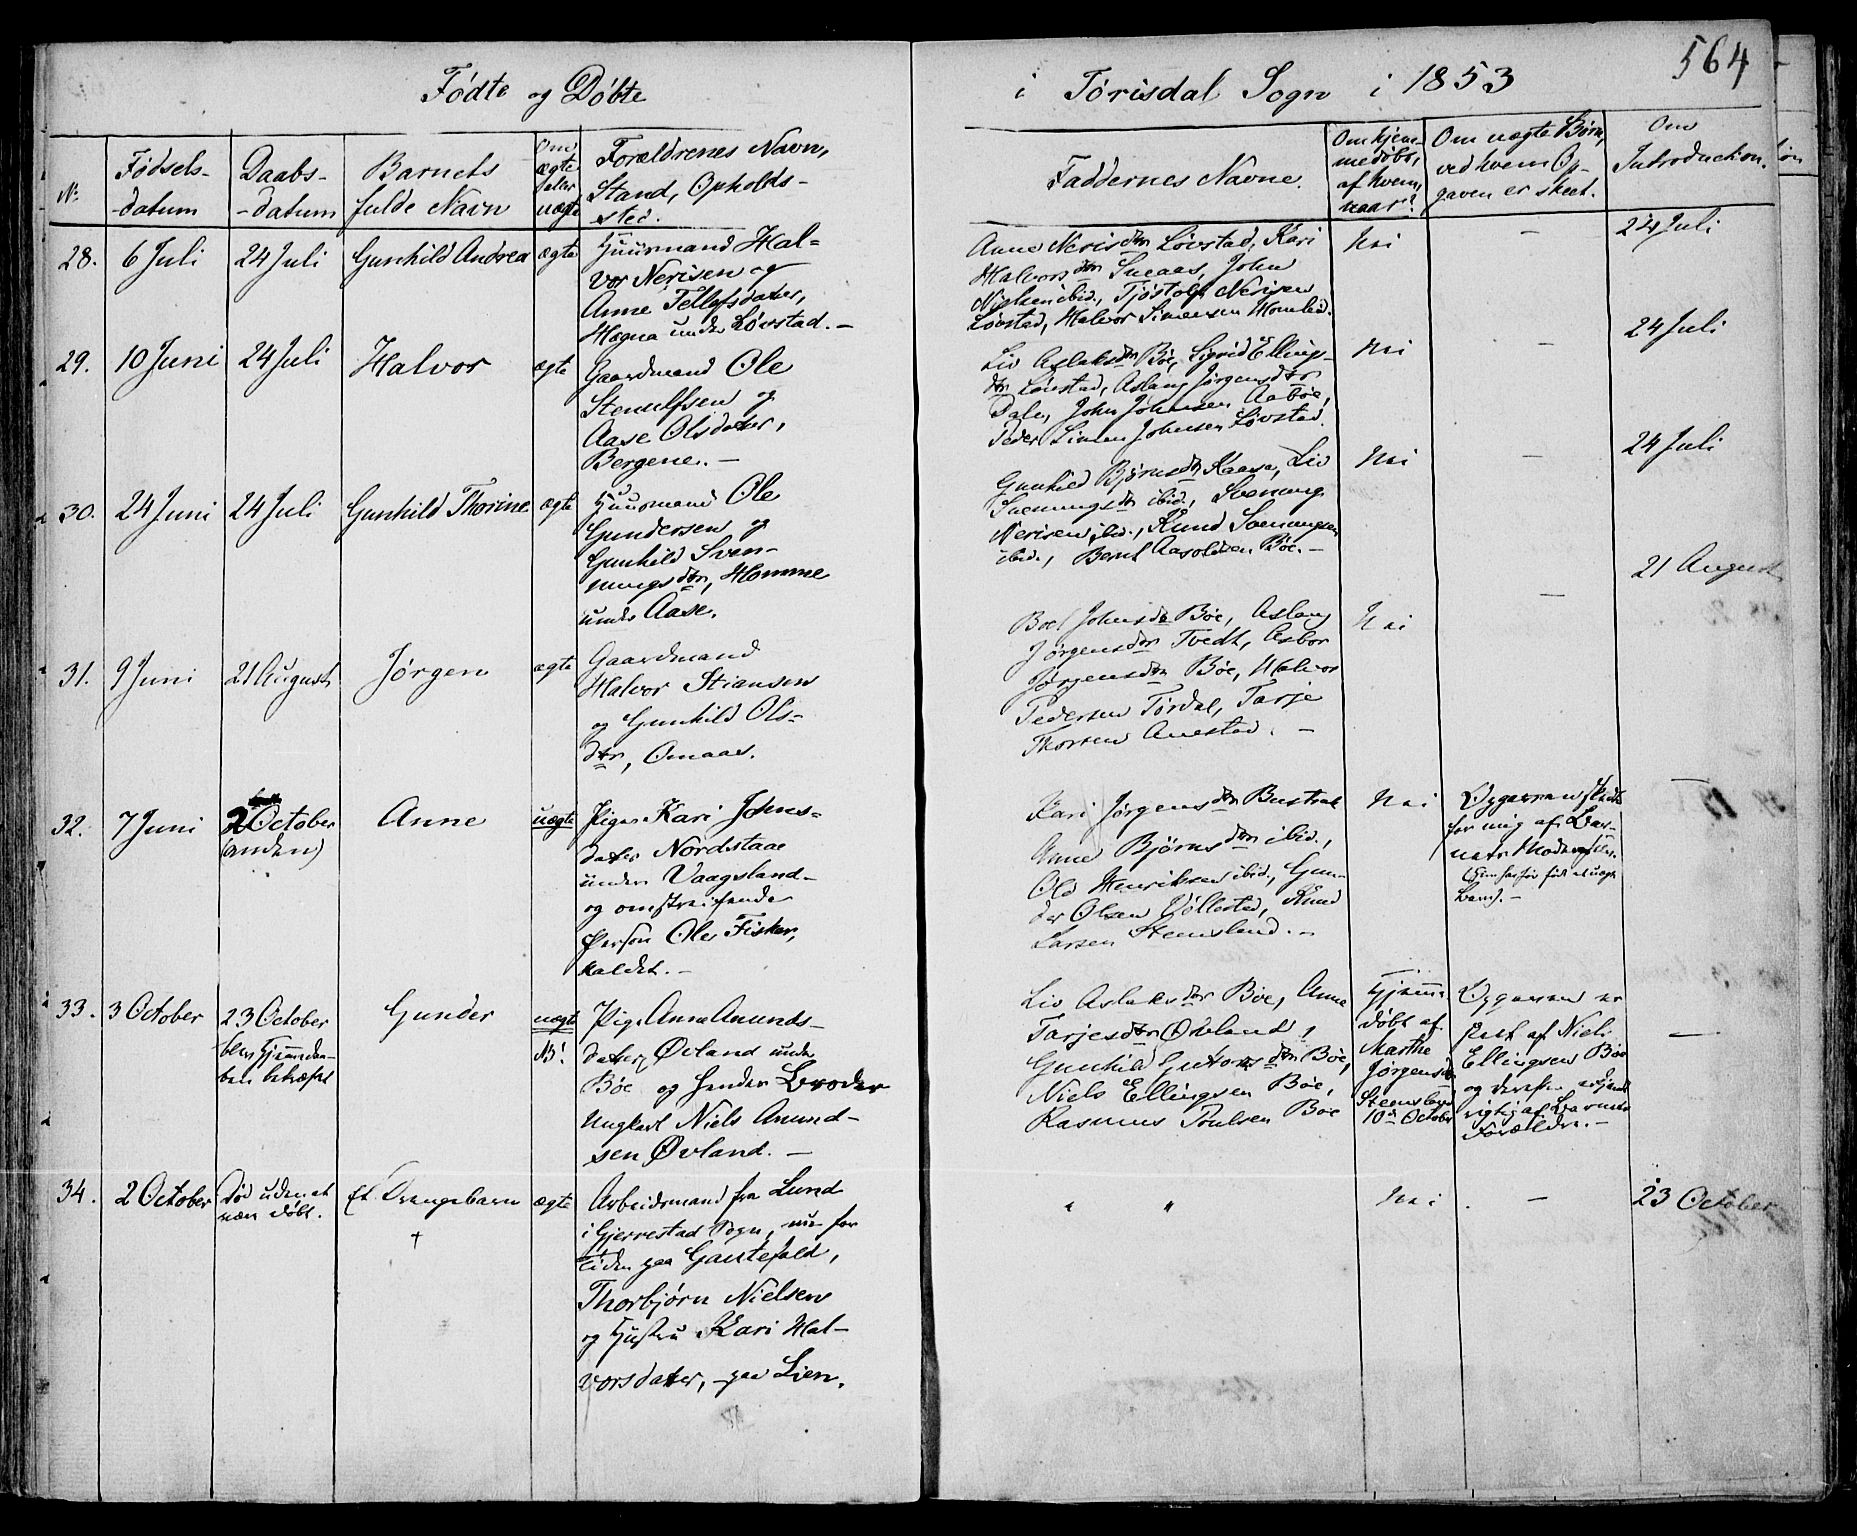 564
Fødte og Døbte
i Tørisdal Sogn i 1853
No
Fødsels-
datum
Daabs-
datum
Barnets
fulde Navn
Om
ægte
eller
uægte
Forældrenes Navn,
Stand, Opholds-
sted.
Faddernes Navne.
Om hjem-
medøbt,
af hvem,
naar?
Om uægte Børn,
ved hvem Op-
gaven er skeet.
Om
Introduction.
28. 6 Juli 24 Juli Gunhild Andrea ægte
Huusmand Hal-
vor Nerisen og
Anne Tellefsdatter,
Hagna under Løvstad. -
Anne Nerisdtr Løvstad, Kari
Halvorsdtr Sneaas, John
Nielsen ibid., Tjøstolf Nerisen
Løvstad, Halvor Simensen Homlid.
Nei
-
24 Juli
29. 10 Juni 24 Juli Halvor ægte
Gaardmand Ole
Stenulfsen og
Aase Olsdatter,
Bergene. -
Liv Aslaksdtr Bøe, Sigrid Ellings-
dtr Løvstad, Aslaug Jørgensdtr
Dale, John Johnsen Aabøe,
Peder Simen Johnsen Løvstad.
Nei
-
24 Juli
30. 24 Juni 24 Juli Gunhild Thorine ægte
Huusmand Ole
Gundersen og
Gunhild Sven-
ningsdtr, Homme
under Aase.
Gunhild Bjørnsdtr Kaasa, Liv
Svenningsdtr ibid., Svenung
Nerisen ibid., Knud Svenungsen
ibid., Bernt Aasoldsen Bøe. -
Nei
-
24 Juli
31. 9 Juni 21 August Jørgen ægte
Gaardmand
Halvor Stiansen
og Gunhild Ols-
dtr, Omaas.
Boel Johnsdtr Bøe, Aslaug
Jørgensdtr Tvedt, Asbor
Jørgensdtr Bøe, Halvor
Pedersen Tørdal, Tarje
Thorsen Avestad. -
Nei
-
21 August
32. 7 Juni 2 October
(anden)
Anne uægte
Pige Kari Johns-
datter Nordstaae
under Vaagsland
og omstreifende
Person Ole Fisker,
kaldet. -
Kari Jørgensdtr Bustrak
Anne Bjørnsdtr ibid.,
Ole Henriksen ibid., Gun-
der Olsen Vøllestad, Knud
Larsen Stensland. -
Nei
Opgaven skeedt
for mig af Bar-
nets Moder
(som har før født et uægte
Barn). -
-
33. 3 October 23 October
blev Hjemmedaa-
ben bekræftet
Gunder uægte
NB!
Pige Anne Amunds-
datter Øvland under
Bøe og hendes Broder
Ungkarl Niels Amund-
sen Øvland. -
Liv Aslaksdtr Bøe, Anne
Tarjesdtr Øvland,
Gunhild Guttormsdtr Bøe,
Niels Ellingsen Bøe,
Rasmus Poulsen Bøe
Hjemme-
døbt af
Marthe
Jørgensdtr
Stensland
10de October
Opgaven er
skeet af Niels
Ellingsen Bøe
og derefter erkjendt
rigtig af Barnets
Forældre. -
-
34. 2 October
Død uden at
være døbt.
Et Drengebarn
†
ægte
Arbeidsmand fra Lund
i Gjerrestad Sogn, nu for
Tiden paa Gautefald,
Thorbjørn Nielsen
og Hustru Kari Hal-
vorsdatter, paa Lien.
" "
Nei
-
23 October